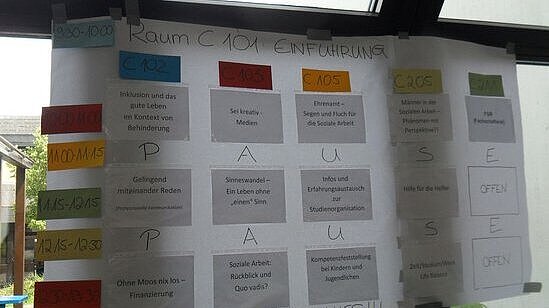 9:30-10:00
RAUM C 101 EINFÜHRUNG
C102
C103
C105
C205
C211
10:00-11:00
Inklusion und das
gute Leben
im Kontext von
Behinderung
Sei kreativ -
Medien
Ehrenamt –
Segen und Fluch für
die Soziale Arbeit
Männer in der
Sozialen Arbeit –
Phänomen mit
Perspektive?!
FSR
(Fachschaftsrat)
11:00-11:15
P A U S E
11:15-12:15
Gelingend
miteinander Reden
(Professionelle Kommunikation)
Sinneswandel –
Ein Leben ohne
„einen“ Sinn
Infos und
Erfahrungsaustausch
zur
Studienorganisation
Hilfe für die Helfer
OFFEN
12:15-12:30
P A U S E
12:30-13:30
Ohne Moos nix los –
Finanzierung
Soziale Arbeit:
Rückblick und
Quo vadis?
Kompetenzfeststellung
bei Kindern und
Jugendlichen
Zeit/Studium/Work
Life Balance
OFFEN